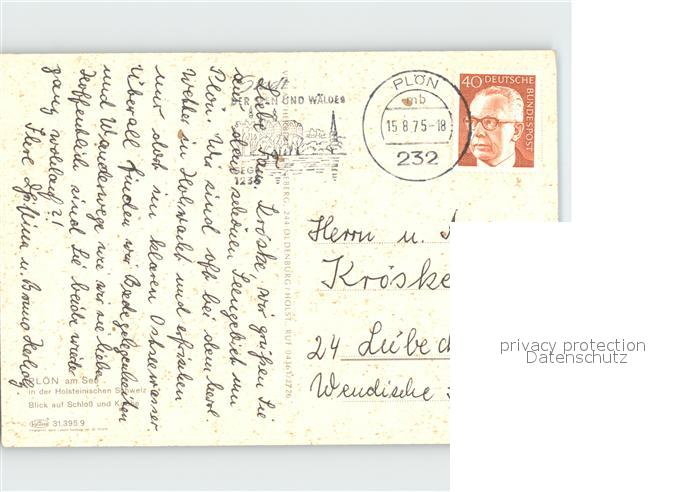 Liebe Fam. Kröske, wir grüßen Sie
aus dem schönen Seengebiet um
Plön. Wir sind oft bei dem herrl.
Wetter in Holwacht und erfrischen
uns dort im klaren Ostseewasser
Überall finden wir Badegelegenheiten
und Wanderwege wie wir sie lieben
Hoffentlich sind Sie beide wieder
ganz wohlauf?!
Ihre u. Bruno
DER SEEN UND WÄLDER
PLÖN
mb
15.8.75-18
232
40 DEUTSCHE
BUNDESPOST
244 OLDENBURG/HOLST. RUF 04361/2726
Herrn u.
Kröske
24 Lübeck
Wendische
PLÖN am See
in der Holsteinischen Schweiz
Blick auf Schloß und
31.395.9
privacy protection
Datenschutz